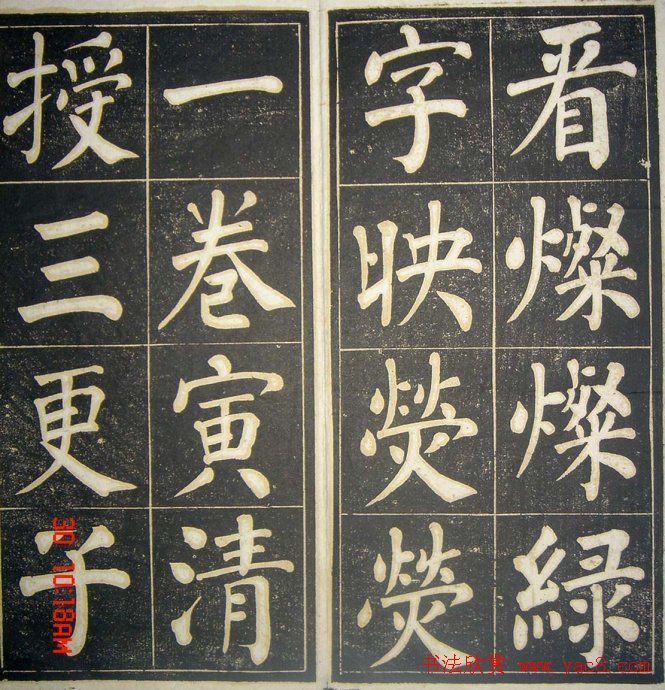 看燦燦綠
字映熒熒
一卷寅清
授三更子
30 10:18AM
书法欣赏 www.yac8.com